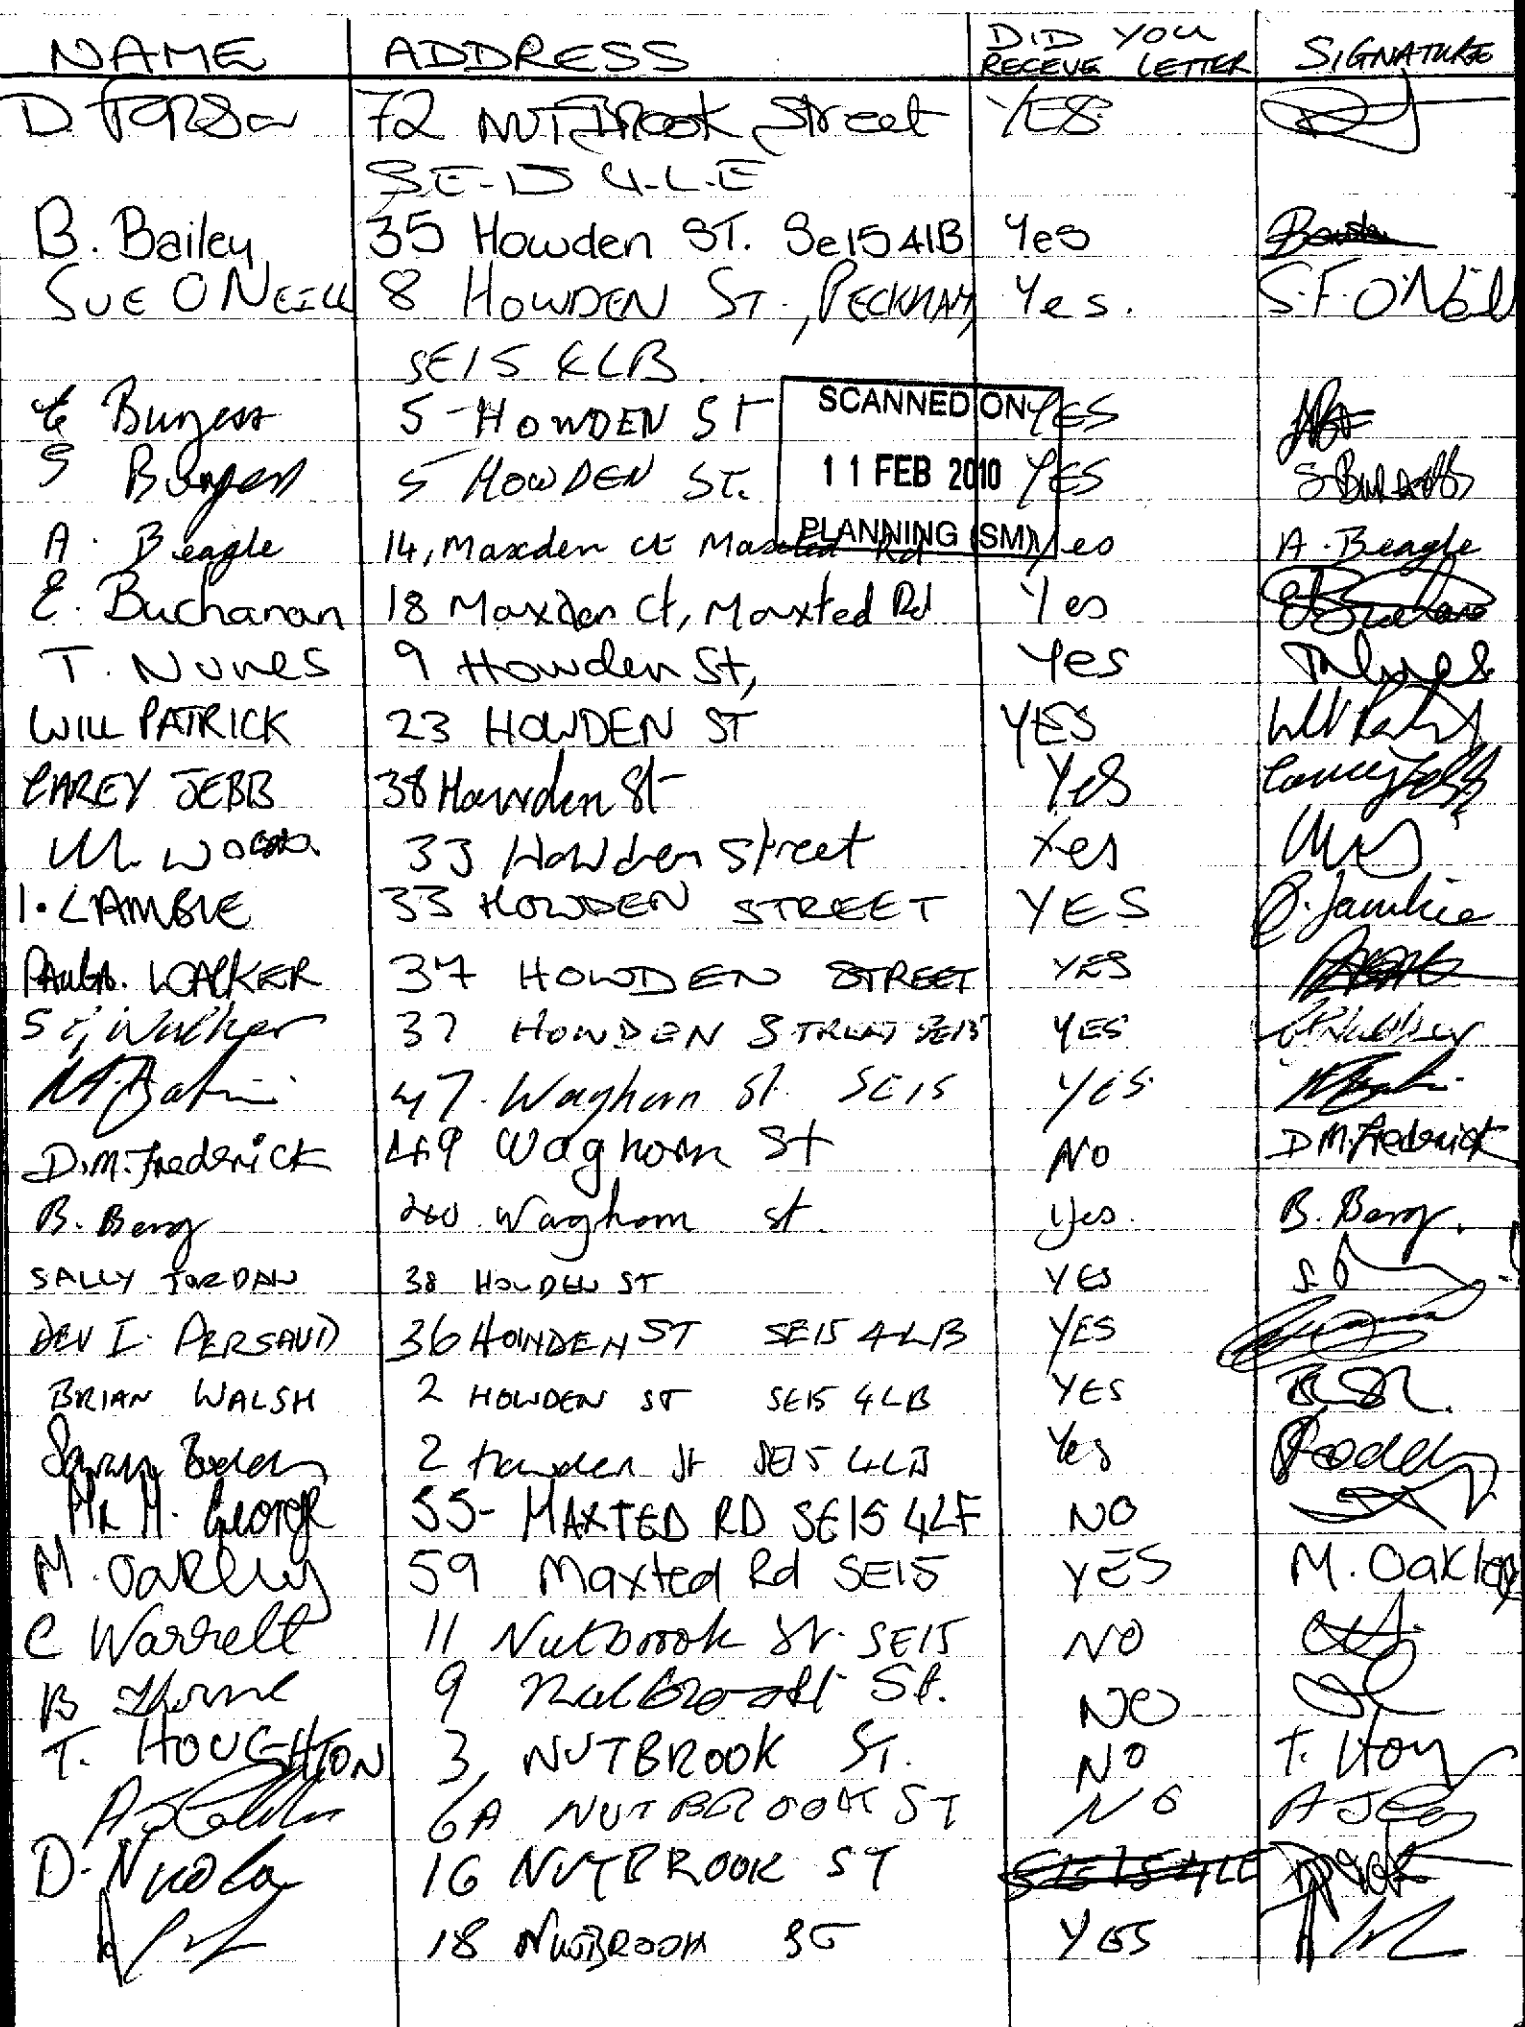 NAME ADDRESS DID YOU RECEVE LETTER SIGNATURE
D 72 NUTBROOK Street YES
SE-15 4-L-E
B. Bailey 35 Howden ST. Se15 41B Yes
SUE O'NEILL 8 HOWDEN ST., PECKHAM, Yes. S.F. O'Neill
SE15 4LB.
SCANNED ON
11 FEB 2010
PLANNING (SM)
Burgess 5 HOWDEN ST YES
S Burgess 5 HOWDEN ST. YES
A. Beagle 14, Maxden ct Maxted Rd Yes A. Beagle
E. Buchanan 18 Maxden Ct, Maxted Rd Yes
T. Nunes 9 Howden St, Yes TNunes
WILL PATRICK 23 HOWDEN ST YES
CAREY JEBB 38 Howden St Yes Carey Jebb
M. 33 Howden Street Yes
I. LAMBIE 33 HOWDEN STREET YES
WALKER 37 HOWDEN STREET YES
Walker 37 HOWDEN STREET SE15 YES
47. Waghorn St. SE15 YES
D.M. Frederick 49 Waghorn St NO D M. Frederick
B. Berg 40 Waghorn St. Yes. B. Berg.
SALLY JORDAN 38 HOWDEN ST YES
DEV I. PERSAUD 36 HOWDEN ST SE15 4LB YES
BRIAN WALSH 2 HOWDEN ST SE15 4LB YES
2 Howden St SE15 4LB Yes
MR M. George 55- MAXTED RD SE15 4LF NO
M. Oakley 59 Maxted Rd SE15 YES M. Oakley
C Warrelt 11 Nutbrook St. SE15 NO
B Thorne 9 Nutbrook St. NO
T. HOUGHTON 3, NUTBROOK ST. NO T. Hou
6A NUTBROOK ST NO
D. 16 NUTBROOK ST SE15 4LE
18 NUTBROOK ST YES